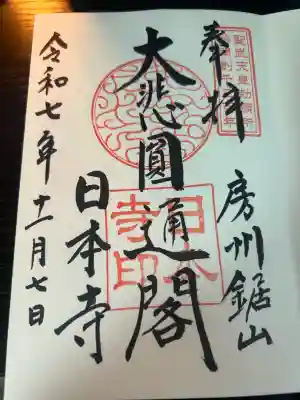 聖武天皇勅願所
奉拝
房州鋸山
大悲圓通閣
日本寺印
日本寺
令和七年十一月七日